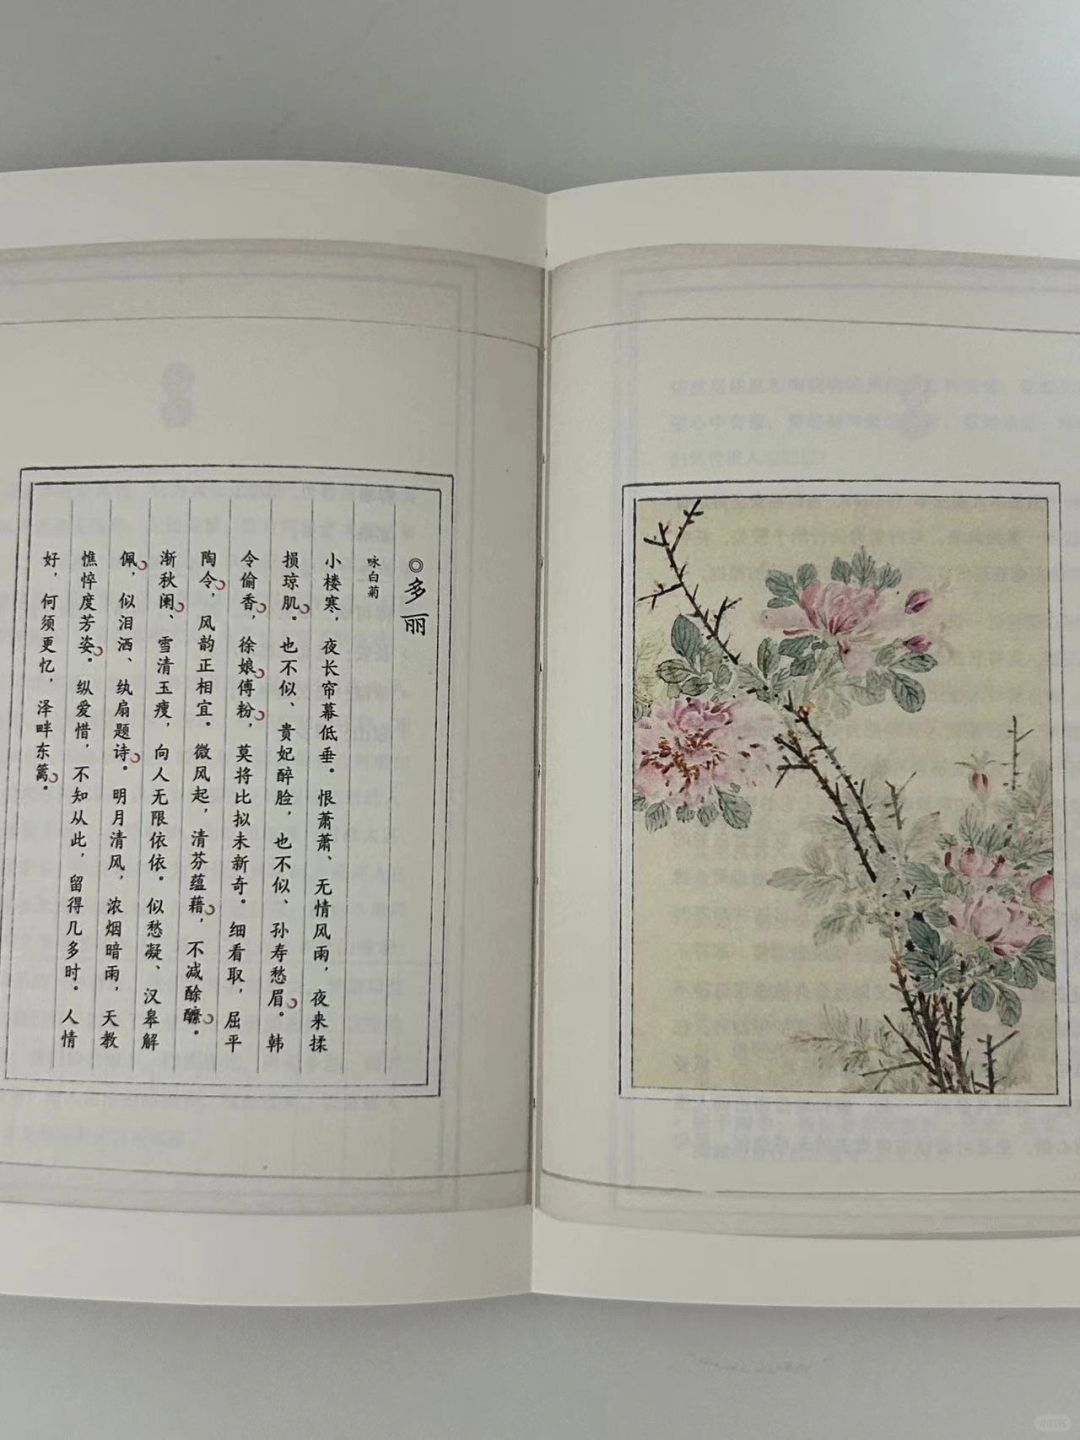 ◎多丽
咏白菊
小楼寒，夜长帘幕低垂。恨萧萧、无情风雨，夜来揉
损琼肌。也不似、贵妃醉脸，也不似、孙寿愁眉。韩
令偷香，徐娘傅粉，莫将比拟未新奇。细看取，屈平
陶令，风韵正相宜。微风起，清芬蕴藉，不减酴醾。
渐秋阑、雪清玉瘦，向人无限依依。似愁凝、汉皋解
佩，似泪洒、纨扇题诗。明月清风，浓烟暗雨，天教
憔悴度芳姿。纵爱惜，不知从此，留得几多时。人情
好，何须更忆，泽畔东篱。